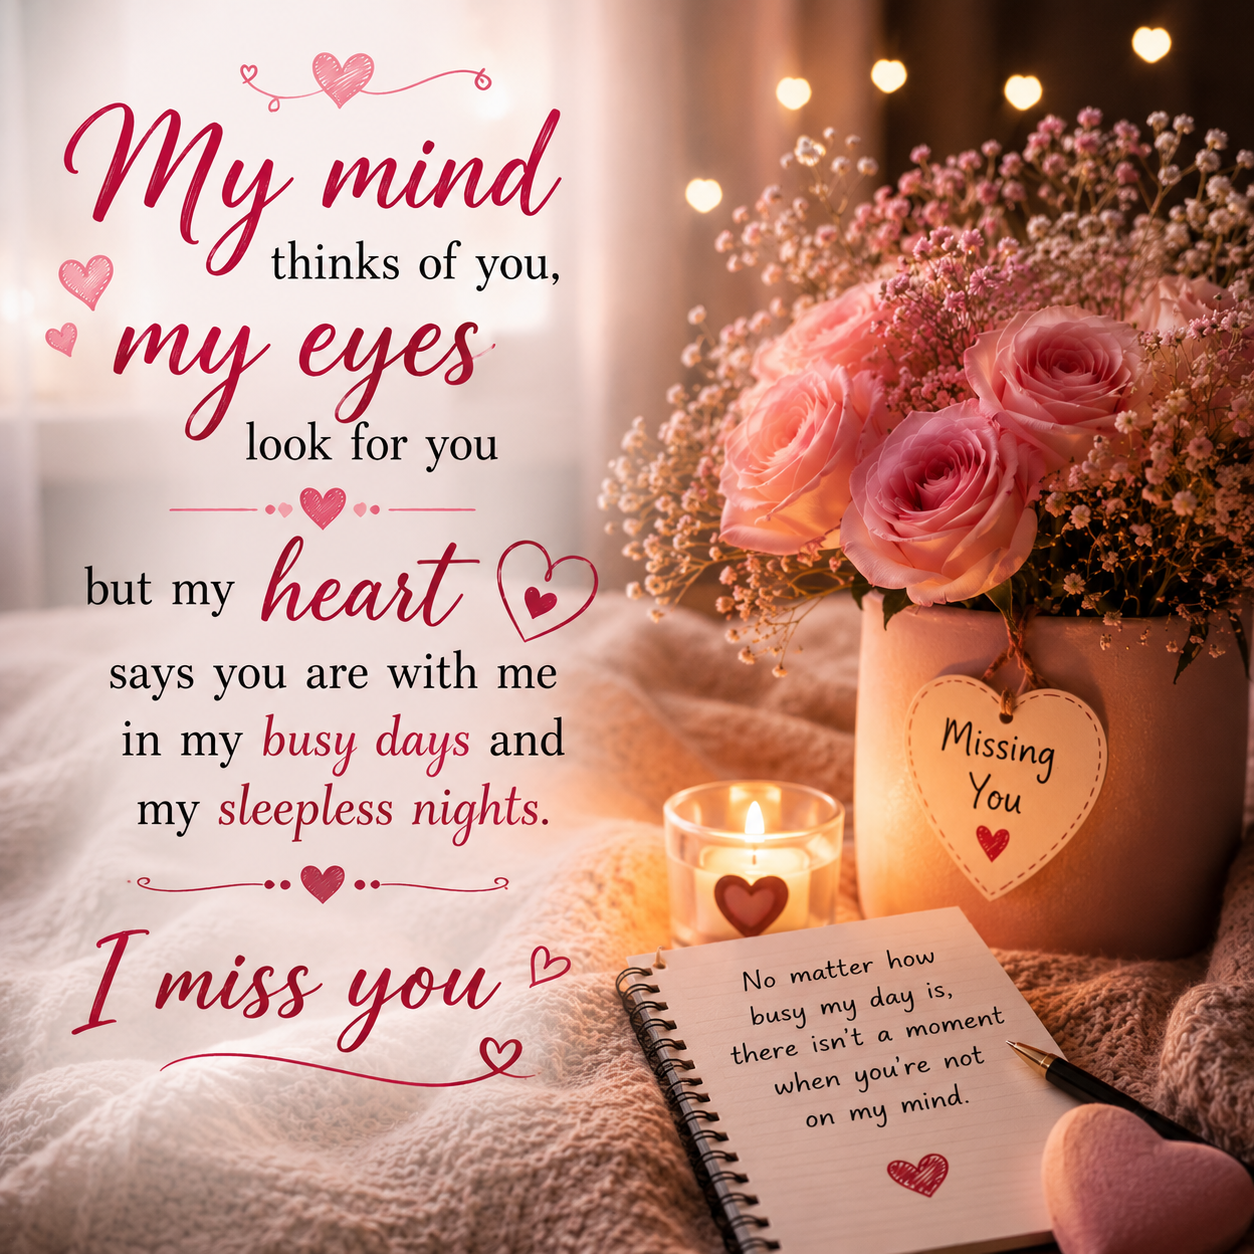 My mind
thinks of you,
my eyes
look for you
but my heart
says you are with me
in my busy days and
my sleepless nights.
I miss you
Missing
You
No matter how
busy my day is,
there isn't a moment
when you're not
on my mind.